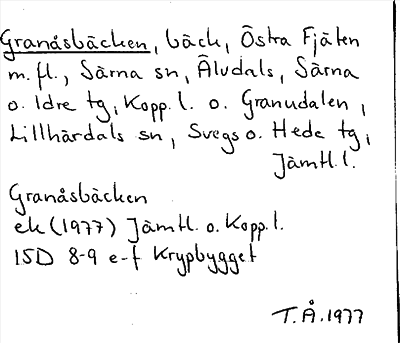 Granåsbäcken, bäck, Östra Fjäten
m.fl., Särna sn, Älvdals, Särna
o. Idre tg, Kopp. l. o. Granudalen,
Lillhärdals sn, Svegs o. Hede tg,
Jämtl. l.
Granåsbäcken
ek (1977) Jämtl. o. Kopp. l.
15D 8-9 e-f Krypbygget
T.Å. 1977